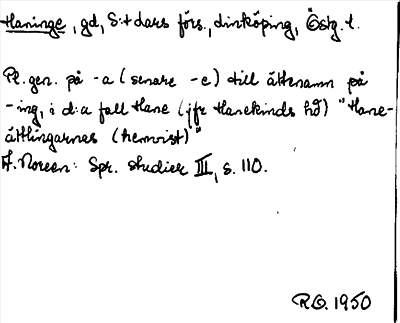 Haninge, gd, S:t Lars förs., Linköping, Östg. l.
Pl. gen. på -a (senare -e) till ättenamn på
-ing, i d:a fall Hane (jfr Hanekinds hd) "Hane-
ättlingarnas (hemvist)"
A. Noreen: Spr. studier III, s. 110.
R.O. 1950